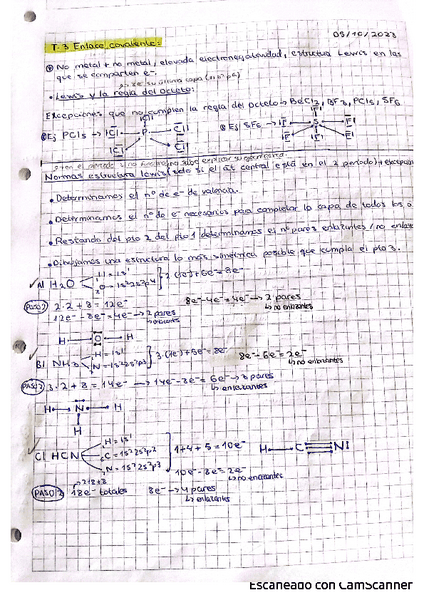 05/10/2023
T.3 Enlace covalente:
No metal + no metal, elevada electronegatividad, estructura Lewis en las
que se comparten e-
Lewis y la regla del octeto:
Excepciones que no cumplen la regla del octeto → BeCl2, BF3, PCl5, SF6
Ej PCl5 → Ej SF6 →
Normas estructura Lewis (solo si el át central está en el 2 periodo)
• Determinamos el nº de e- de valencia.
• Determinamos el nº de e- necesarios para completar la capa de todos los
• Restando del pso 2 del pso 1 determinamos el nº pares enlazantes / no enlazan
• Dibujamos una estructura lo más simétrica posible que cumpla el pso 3.
A) H2O H = 1s1
O = 1s2 2s2 p4
2(1e-)+6e- = 8e-
PASO 2 2·2+8 = 12e- 8e- - 4e- = 4e- → 2 pares
no enlazantes
12e- - 8e- = 4e- → 2 pares
enlazantes
H O H
B) NH3 H = 1s1
N = 1s2 2s2 p3
3(1e-)+5e- = 8e- 8e- - 6e- = 2e-
no enlazantes
PASO 2 3·2+8 = 14e- → 14e- - 8e- = 6e- → 3 pares
enlazantes
H N H
H
C) HCN H = 1s1
C = 1s2 2s2 p2
N = 1s2 2s2 p3
1+4+5 = 10e- H C N
10e- - 8e- = 2e-
no enlazantes
2+8+8
PASO 2 18e- totales 8e- → 4 pares
enlazantes
Escaneado con CamScanner